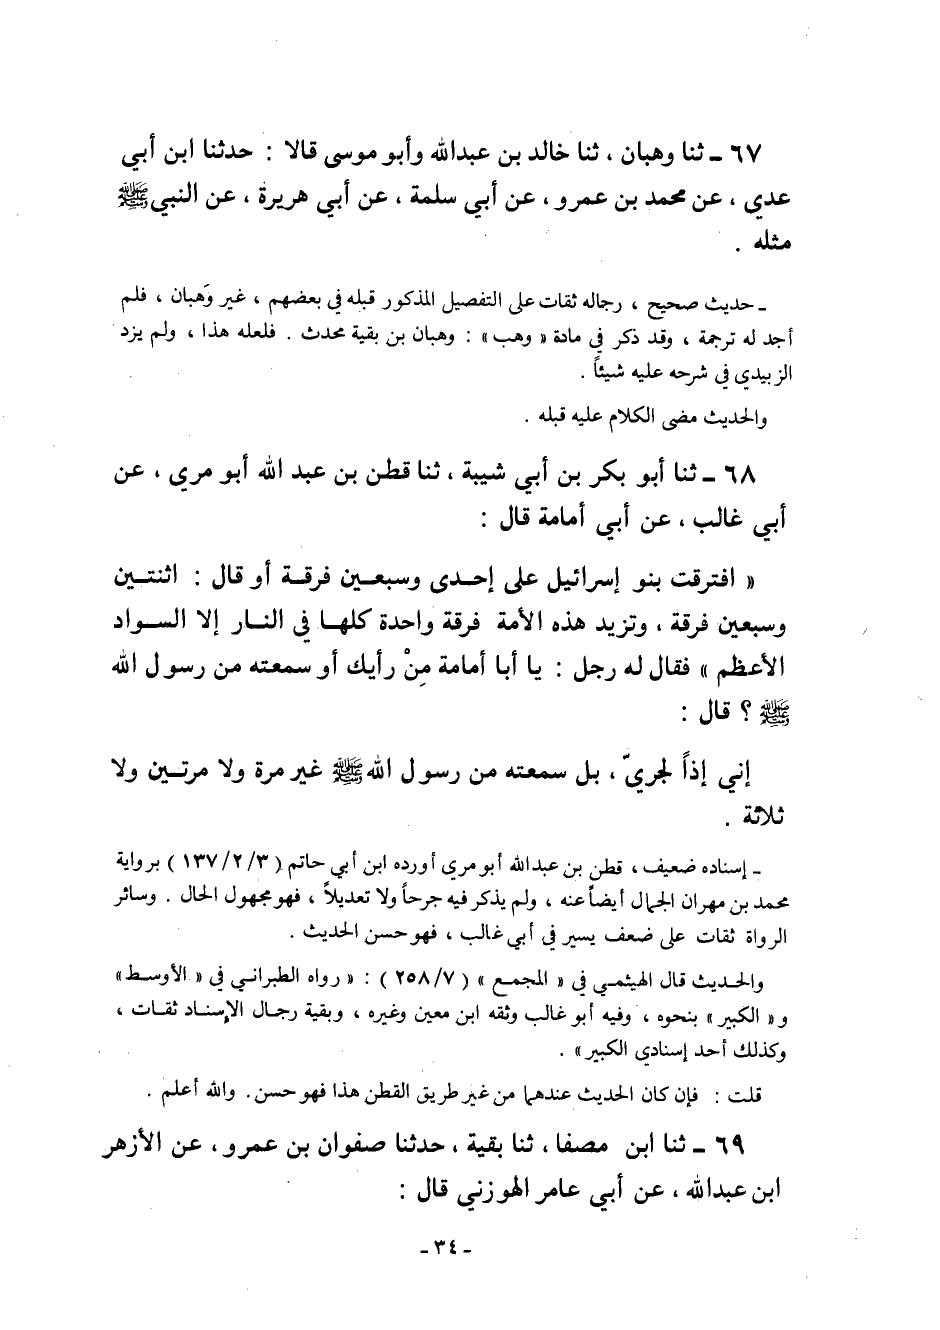 ٦٧ ـ ثنا وهبان ، ثنا خالد بن عبدالله وأبو موسى قالا : حدثنا ابن أبي
عدي ، عن محمد بن عمرو ، عن أبي سلمة ، عن أبي هريرة ، عن النبي ﷺ
مثله .
ـ حديث صحيح ، رجاله ثقات على التفصيل المذكور قبله في بعضهم ، غير وَهبان ، فلم
أجد له ترجمة ، وقد ذكر في مادة « وهب » : وهبان بن بقية محدث . فلعله هذا ، ولم يزد
الزبيدي في شرحه عليه شيئاً .
والحديث مضى الكلام عليه قبله .
٦٨ ـ ثنا أبو بكر بن أبي شيبة ، ثنا قطن بن عبد الله أبو مري ، عن
أبي غالب ، عن أبي أمامة قال :
« افترقت بنو إسرائيل على إحدى وسبعين فرقة أو قال : اثنتين
وسبعين فرقة ، وتزيد هذه الأمة فرقة واحدة كلها في النار إلا السواد
الأعظم » فقال له رجل : يا أبا أمامة مِنْ رأيك أو سمعته من رسول الله
ﷺ ؟ قال :
إني إذاً لجريّ ، بل سمعته من رسول الله ﷺ غير مرة ولا مرتين ولا
ثلاثة .
ـ إسناده ضعيف ، قطن بن عبدالله أبو مري أورده ابن أبي حاتم ( ٣/ ٢/ ١٣٧ ) برواية
محمد بن مهران الجمال أيضاً عنه ، ولم يذكر فيه جرحاً ولا تعديلاً ، فهو مجهول الحال . وسائر
الرواة ثقات على ضعف يسير في أبي غالب ، فهو حسن الحديث .
والحديث قال الهيثمي في « المجمع » ( ٧/ ٢٥٨ ) : « رواه الطبراني في « الأوسط »
و « الكبير » بنحوه ، وفيه أبو غالب وثقه ابن معين وغيره ، وبقية رجال الإسناد ثقات ،
وكذلك أحد إسنادي الكبير » .
قلت : فإن كان الحديث عندهما من غير طريق القطن هذا فهو حسن . والله أعلم .
٦٩ ـ ثنا ابن مصفا ، ثنا بقية ، حدثنا صفوان بن عمرو ، عن الأزهر
ابن عبدالله ، عن أبي عامر الهوزني قال :
- ٣٤ -